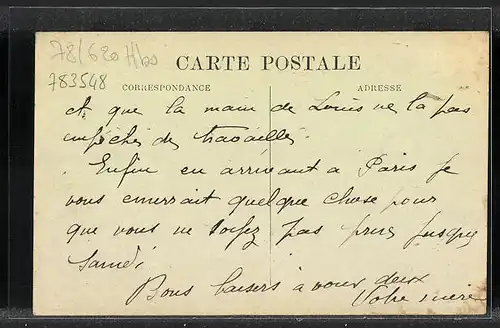 78/620 Hbs
783548
CARTE POSTALE
CORRESPONDANCE
ADRESSE
et que la main de Louis ne la pas
empéchés de travailles.
Enfin en arrivant a Paris je
vous enverrait quelque chose pour
que vous ne soyez pas prives jusque
Samedi
Bons baisers à vous deux
Votre mère